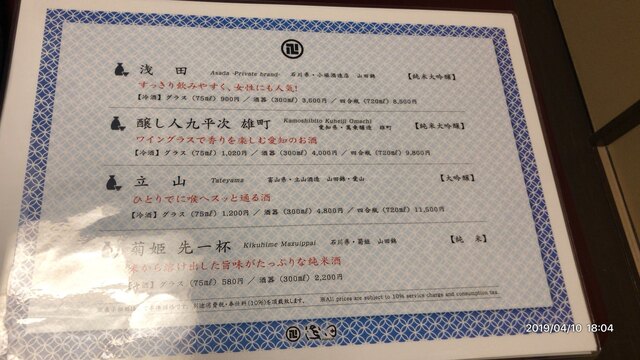 浅田 Asada -Private brand- 石川県・小堀酒造店 山田錦 【純米大吟醸】
すっきり飲みやすく、女性にも人気!
【冷酒】グラス (75㎖) 900円 / 酒器 (300㎖) 3,600円 / 四合瓶 (720㎖) 8,500円
醸し人九平次 雄町 Kamoshibito Kuheiji Omachi 愛知県・萬乗醸造 雄町 【純米大吟醸】
ワイングラスで香りを楽しむ愛知のお酒
【冷酒】グラス (75㎖) 1,020円 / 酒器 (300㎖) 4,000円 / 四合瓶 (720㎖) 9,800円
立山 Tateyama 富山県・立山酒造 山田錦・愛山 【大吟醸】
ひとりでに喉へスッと通る酒
【冷酒】グラス (75㎖) 1,200円 / 酒器 (300㎖) 4,800円 / 四合瓶 (720㎖) 11,500円
菊姫 先一杯 Kikuhime Mazuippai 石川県・菊姫 山田錦 【純米】
米から溶け出した旨味がたっぷりな純米酒
【冷酒】グラス (75㎖) 580円 / 酒器 (300㎖) 2,200円
別途消費税・奉仕料(10%)を頂戴致します。 ※All prices are subject to 10% service charge and consumption tax.
2019/04/10 18:04